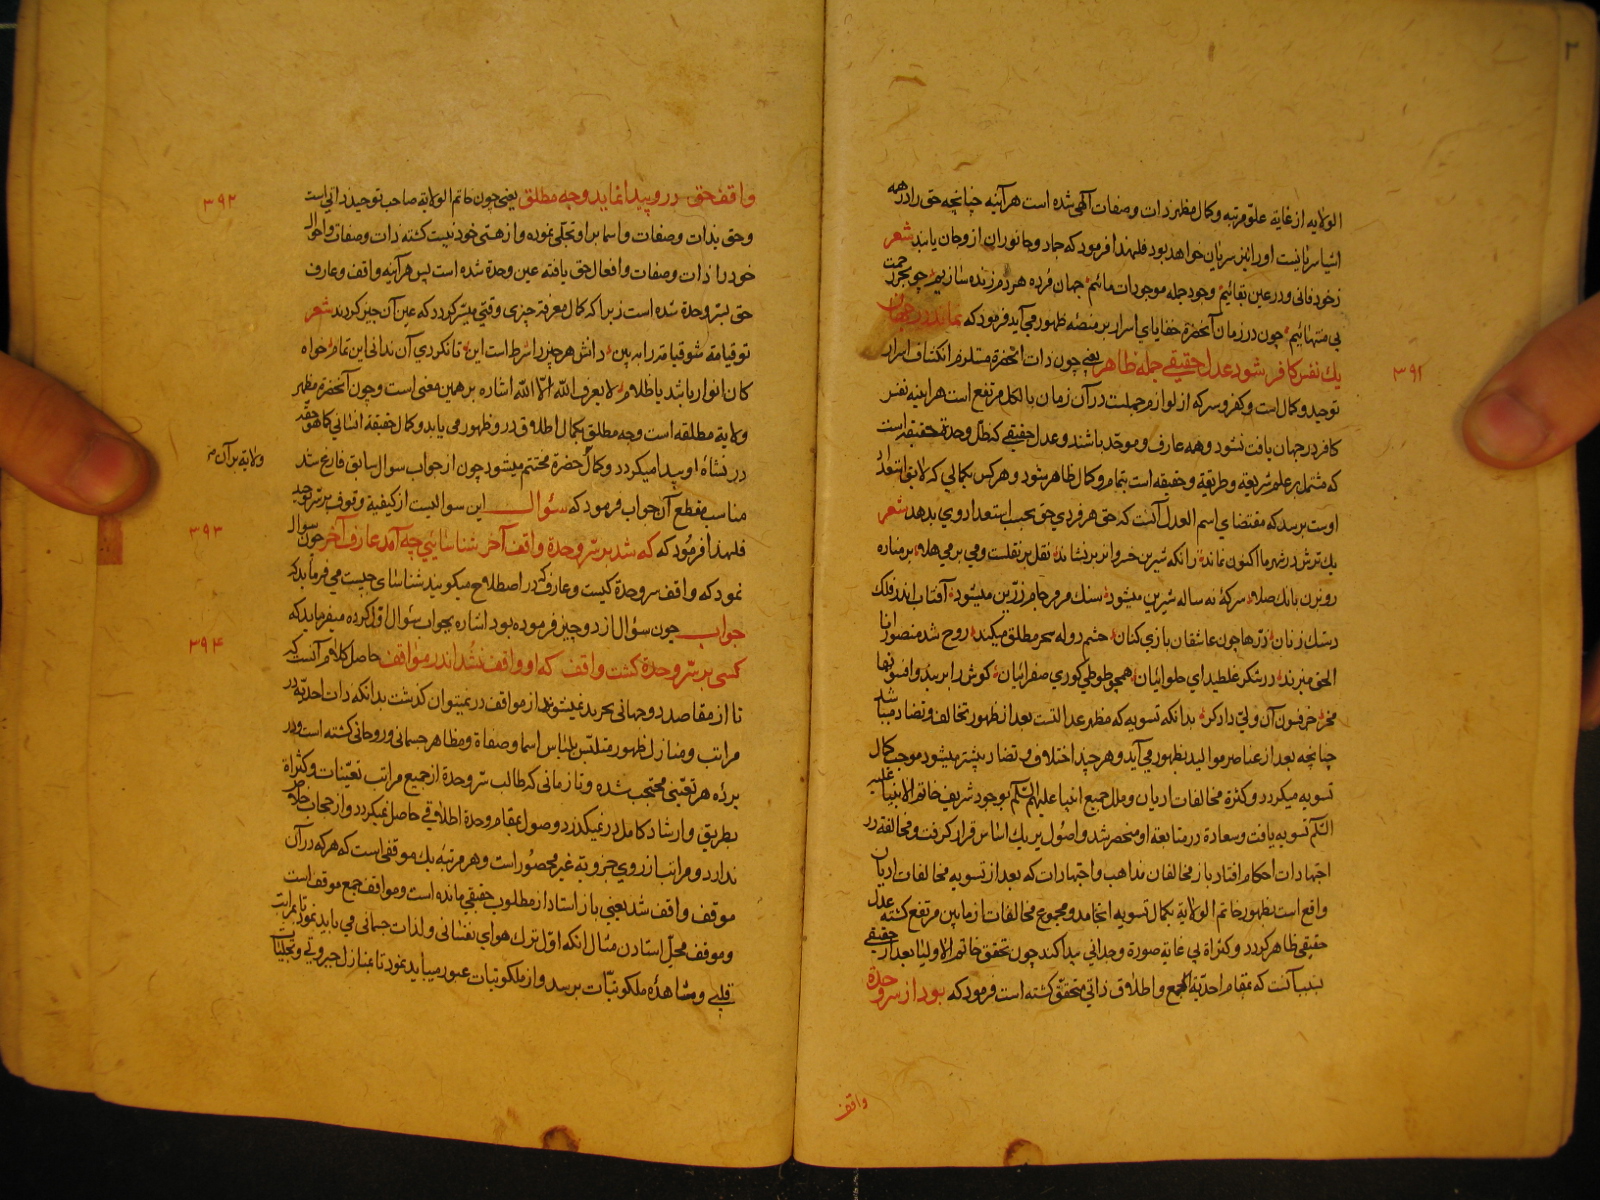 الولایه از غایة علو مرتبه و کمال مظهر ذات و صفات آلهی شده است هر آینه چنانچه حق را در همه
اشیا سریانیست او را نیز سریان خواهد بود فلهذا فرمود که جماد و جانور ان از و جان یابند شعر
ز خود فانی و در عین بقائیم وجود جمله موجودات مائیم جهان مرده هر دم زنده سازیم چو بحر رحمت
بی منتهائیم چون در زمان آنحضرة خفایای اسرار بر منصّه ظهور می آید فرمود که نماند در جهان
یک نفس کافر شود عدل حقیقی جمله ظاهر یعنی چون ذات آنحضرة مستلزم انکشاف اسرار
۳۹۱
توحید و کمال است و کفر و سرکه از لوازم جهلست در آن زمان بالکل مرتفع است هر اینه نفس
کافر در جهان یافت نشود و همه عارف و موحّد باشند و عدل حقیقی که ظل وحدة حقیقیه است
که مشتمل بر علم شریعة و طریقة و حقیقه است بتمام و کمال ظاهر شود و هر کس بکمالی که لایق استعداد
اوست برسد که مقتضای اسم العدل آنست که حق هر فردی حق بحسب استعداد وی بدهد شعر
یک ترش در شهر ما اکنون نماند زانکه شیرین خسروان بر نشاند نقل بر نقلست و می بر می هلا بر مناره
رو بزن بانک صلا سرکهٔ نه ساله شیرین میشود سنک مرمر جام زرّین میشود آفتاب اندر فلک
دستک زنان ذرّها چون عاشقان بازی کنان چشم دوله سحر مطلق میکند روح شد منصور انا
الحق میزند در شکر غلطید ای حلوائیان همچو طوطی کوری صفرائیان کوش را بر بند و افسونها
مخر جز فسون آن ولیّ دادکر بدانکه تسویه که مظهر عدالتست بعد از ظهور تخالف و تضاد میباشد
چنانچه بعد از عناصر موالید بظهور می آید و هر چند اختلاف و تضاد بیشتر میشود موجب کمال
تسویه میکردد و کثرة مخالفات ادیان و ملل جمیع انبیا علیهم السّلم بوجود شریف خاتم الانبیا علیه
السّلم تسویه یافت و سعادة در متابعة او منحصر شد و اصول بر یک اساس قرار کرفت و مخالفة در
اجتهادات احکام افتاد باز مخالفان مذاهب و اجتهادات که بعد از تسویه مخالفات ادیان
واقع است بظهور خاتم الولایة بکمال تسویه انجامد و مجموع مخالفات از مابین مرتفع کشته عدل
حقیقی ظاهر کردد و کثراة بی غایة صورة وجدانی پیدا کند چون تحقق خاتم الاولیا بعدل حقیقی
بسبب آنست که بمقام احدیّة الجمع و اطلاق ذاتی متحقق کشته است فرمود که بود از سرّ وحدة
واقف
واقف حق درو پیدا نماید وجه مطلق یعنی چون خاتم الولایة صاحب توحید ذاتی است
۳۹۲
و حق بذات و صفات و اسما بر او تجلّی نموده و از هستی خود نیست کشته ذات و صفات و احوال
خود را ذات و صفات و افعال حق یافته عین وحدة شده است پس هر آینه واقف و عارف
حق بسرّ وحدة شده است زیرا که کمال معرفة چیزی وقتی میسّر کردد که عین آن چیز کردند شعر
تو قیامة شو قیامة را ببین دانش هر چیز را شرط است این تا نکردی آن ندانی این تمام خواه
کان انوار باشد یا ظلام لا یعرف اللّه الّا اللّه اشاره بر همین معنی است و چون آنحضرة مظهر
ولایة مطلقه است وجه مطلق بکمال اطلاق درو ظهور می یابد و کمال حقیقة انسانی کما هو حقّه
در نشاهٔ او پیدا میکردد و کمال حضرة مختتم میشود چون از جواب سوال سابق فارغ شد
ولایة بر آن
مناسب مقطع آن جواب فرمود که سئوال این سوالیست از کیفیة وقوف بر سرّ وحدة
فلهذا فرمود که که شد بر سرّ وحدة واقف آخر شناسائیی چه آمد عارف آخر چون سوال
۳۹۳
نمود که واقف سر وحدة کیست و عارف که در اصطلاح میکویند شناسای چیست می فرماید که
جواب چون سئوال از دو چیز فرموده بود اشاره بجواب سئوال اوّل کرده میفرماید که
کسی بر سرّ وحدة کشت واقف که او واقف نشد اندر مواقف حاصل کلام آنست که
۳۹۴
تا از مقاصد دو جهانی تجرید نمیشوند از مواقف در نمیتوان کذشت بدانکه ذات احدیّة در
مراتب و منازل ظهور متلبّس بلباس اسما و صفاة و مظاهر جسمانی و روحانی کشته است و در
پردهٔ هر تعیّنی محتجب شده و تا زمانی که طالب سرّ وحدة از جمیع مراتب تعیّنات و کثراة
بطریق و ارشاد کامل در نمیکذرد وصول بمقام وحدة اطلاقی حاصل نمیکردد و از حجاب خلاص
ندارد و مراتب از روی جزویة غیر محصور است و هر مرتبه یک موقفی است که هر که در آن
موقف واقف شد یعنی باز استاد از مطلوب حقیقی مانده است و مواقف جمع موقف است
و موقف محلّ استادن مثال انکه اوّل ترک هوای نفسانی و لذات جسمانی می باید نمود تا بمراتب
قلبی و مشاهدهٔ ملکوتیّات برسد و از ملکوتیات عبور میباید نمود تا بمنازل جبروتی و تجلیات